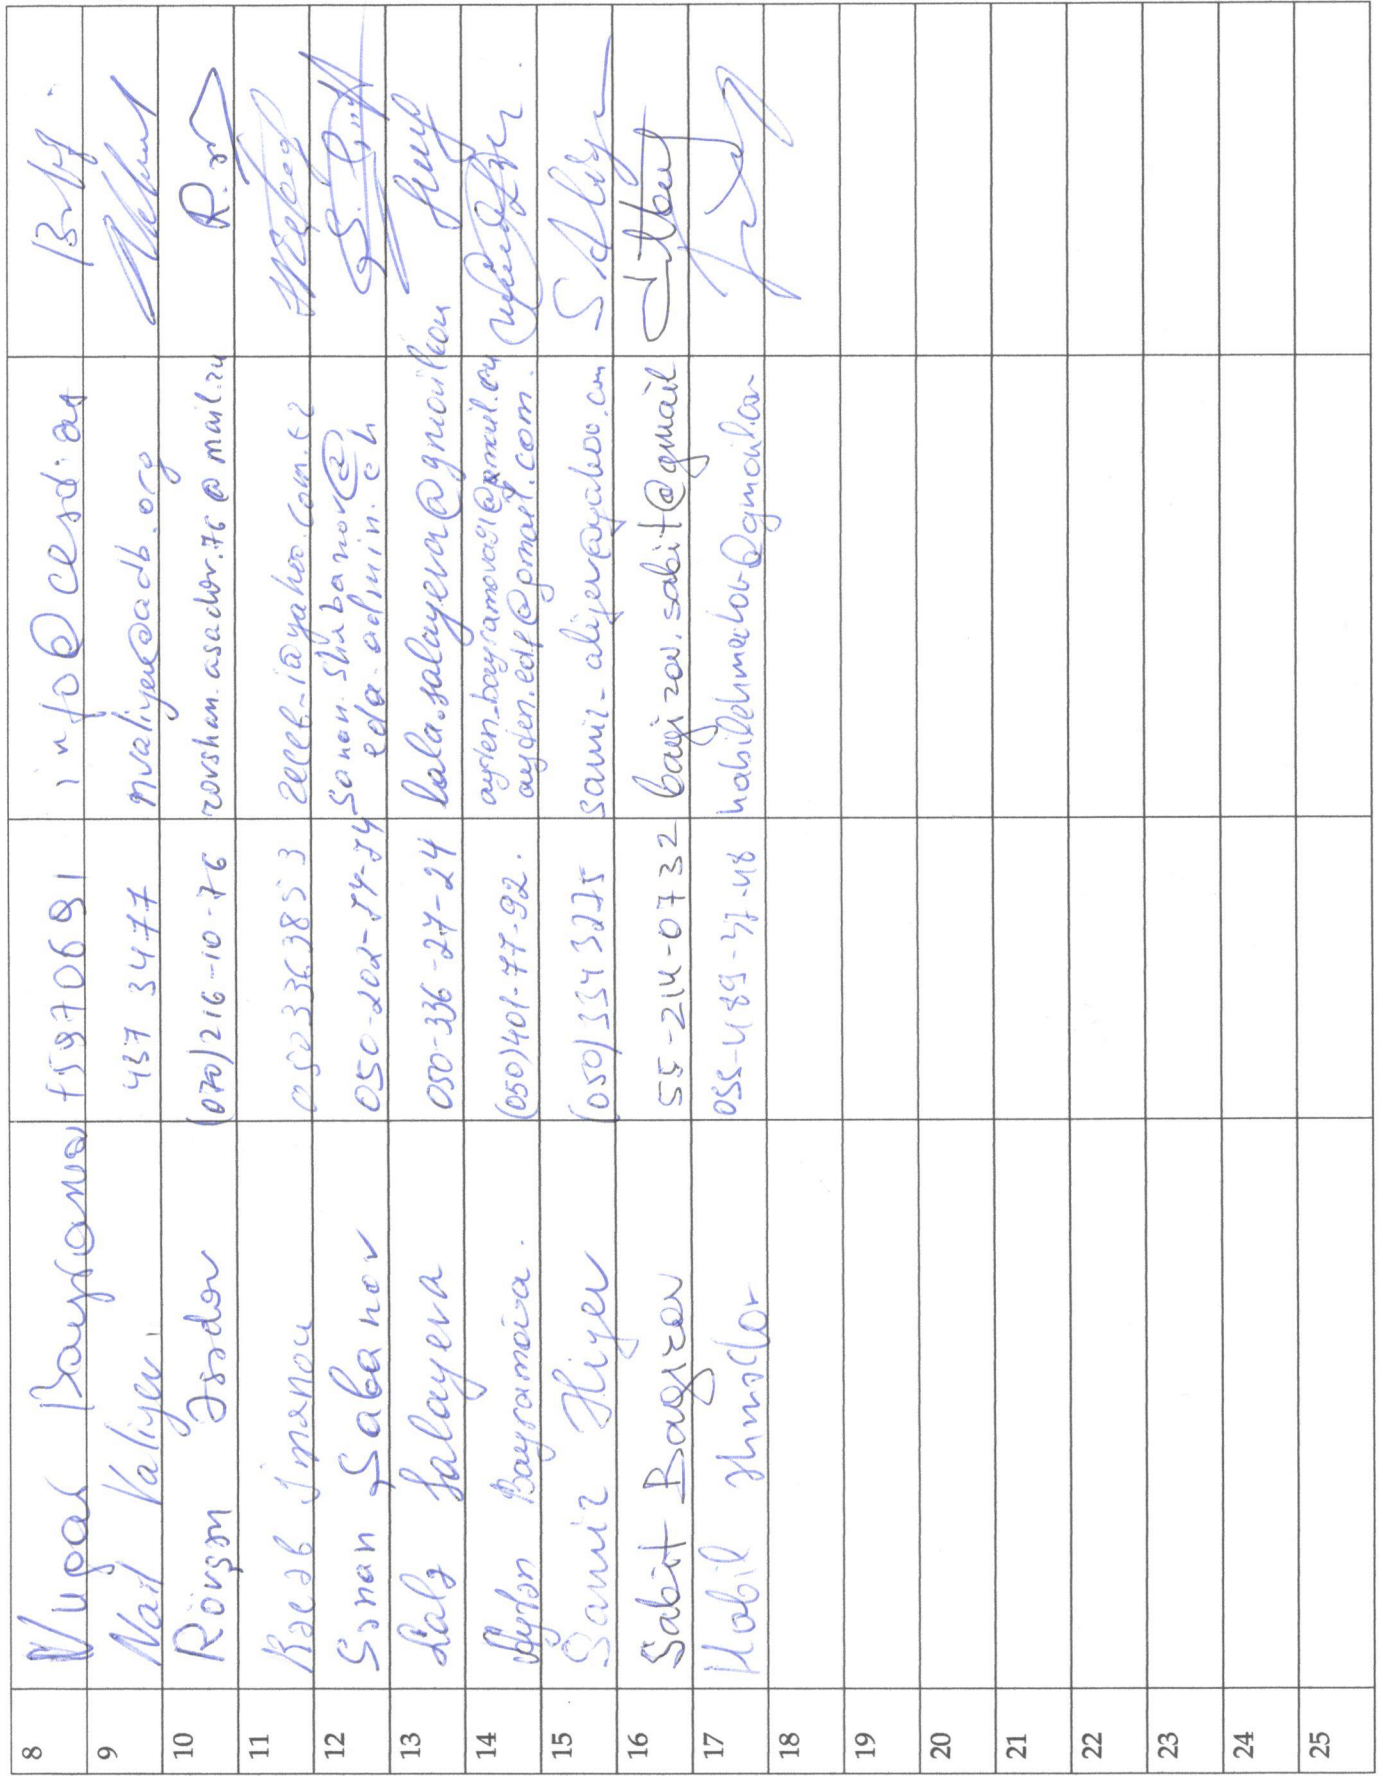 8 Vugar Bayramov f5970691 info@cesd.az
9 Nail Valiyev. 437 3477 nvaliyev@adb.org
10 Rövşən Əsədov (070)216-10-76 rovshan.asadov.76@mail.ru R.
11 Rəcəb İmanov 0503363853
12 Sənan Şabanov 050-202-54-74 Sanan.shabanov@
eda.admin.ch
13 Lalə Salayeva 050-336-27-24 lala.salayeva@gmail.com
14 Aytən Bayramova. (050)401-77-92. ayten_bayramova91@gmail.com
ayten.edf@gmail.com.
15 Samir Əliyev (050)3343275 samir_aliyev@yahoo.com
16 Sabit Bagirov 55-214-0732 bagirov.sabit@gmail
17 Habil Əhmədov 055-489-37-48 habilahmadov@gmail.com
18
19
20
21
22
23
24
25